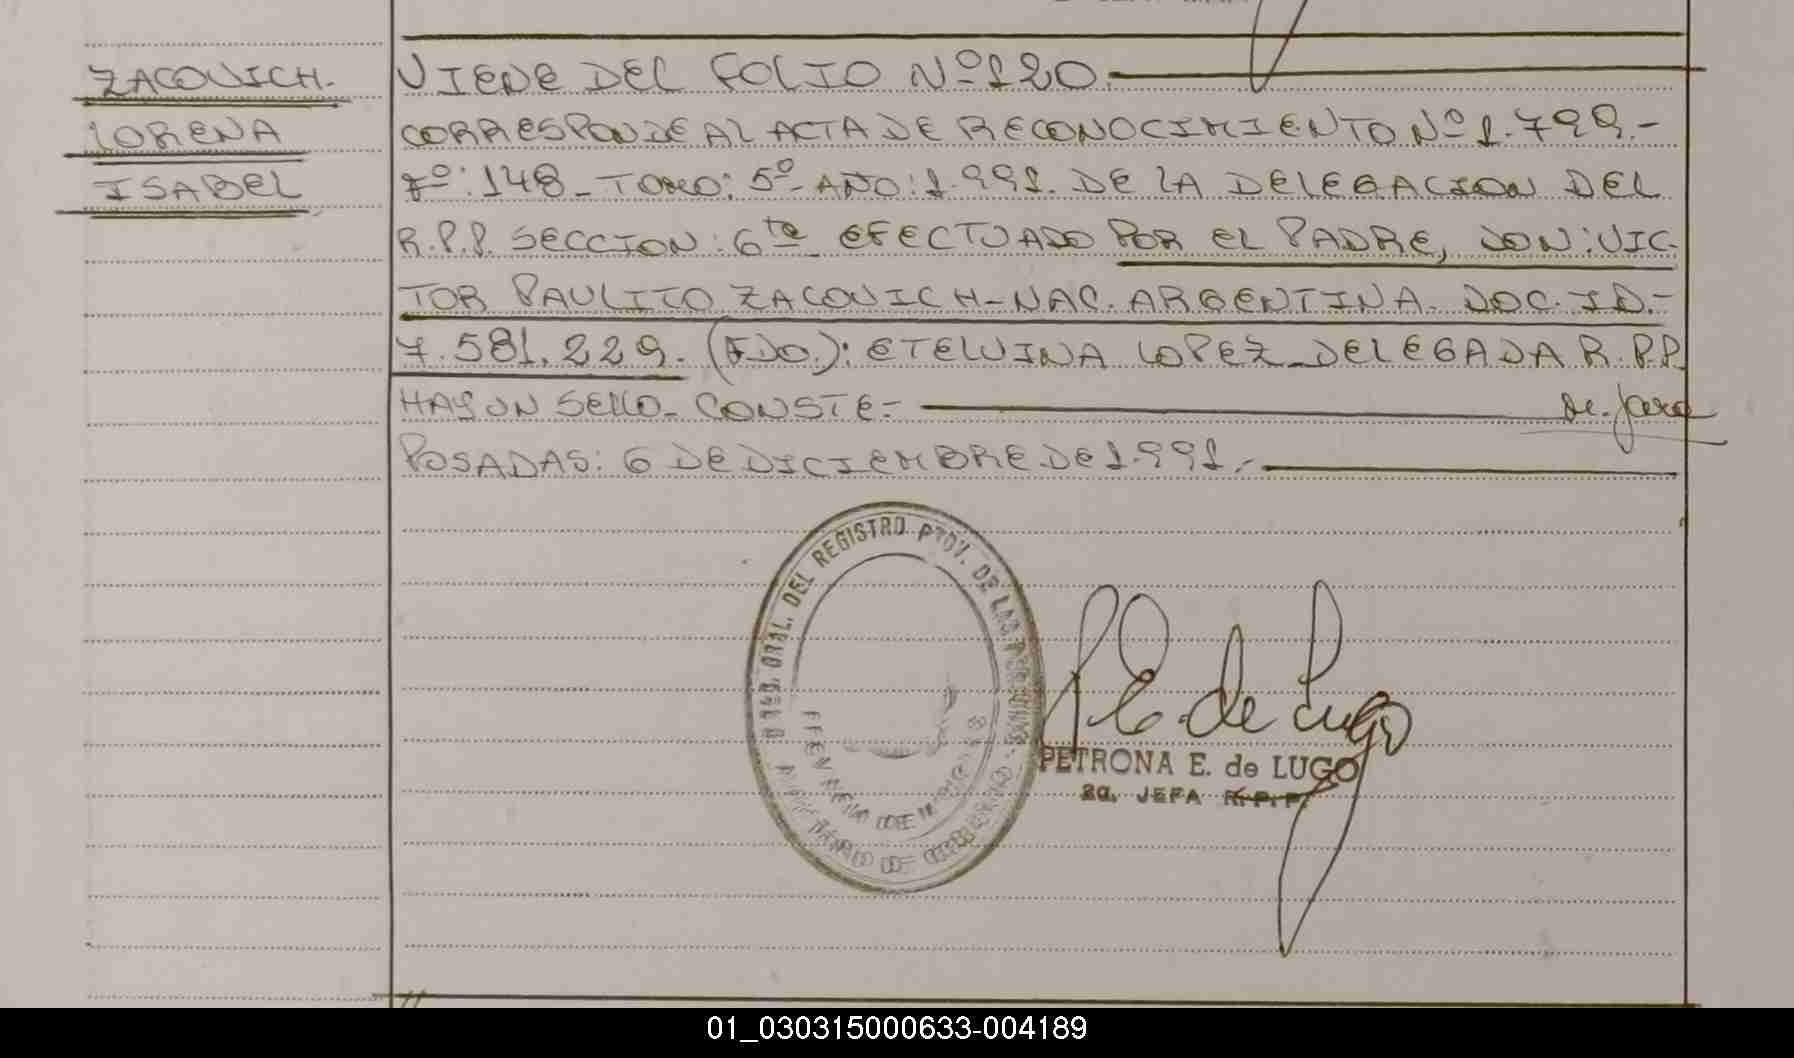 ZACOVICH.
LORENA
ISABEL
VIENE DEL FOLIO Nº120.
CORRESPONDE AL ACTA DE RECONOCIMIENTO Nº1.799.-
Fº:148_TOMO: 5º_AÑO:1.991. DE LA DELEGACION DEL
R.P.P. SECCION: 6ta_ EFECTUADO POR EL PADRE, DON: VIC-
TOR PAULITO ZACOVICH-NAC. ARGENTINA. DOC. ID.-
7.581.229. (FDO.): ETELVINA LOPEZ_DELEGADA R.P.P.
HAY UN SELLO_ CONSTE-
de. Jara
POSADAS: 6 DE DICIEMBRE DE 1.991.-
GRAL. DEL REGISTRO PROV. DE LAS PERSONAS
P E. de Lugo
PETRONA E. de LUGO
2a. JEFA R.P.P.
01_030315000633-004189